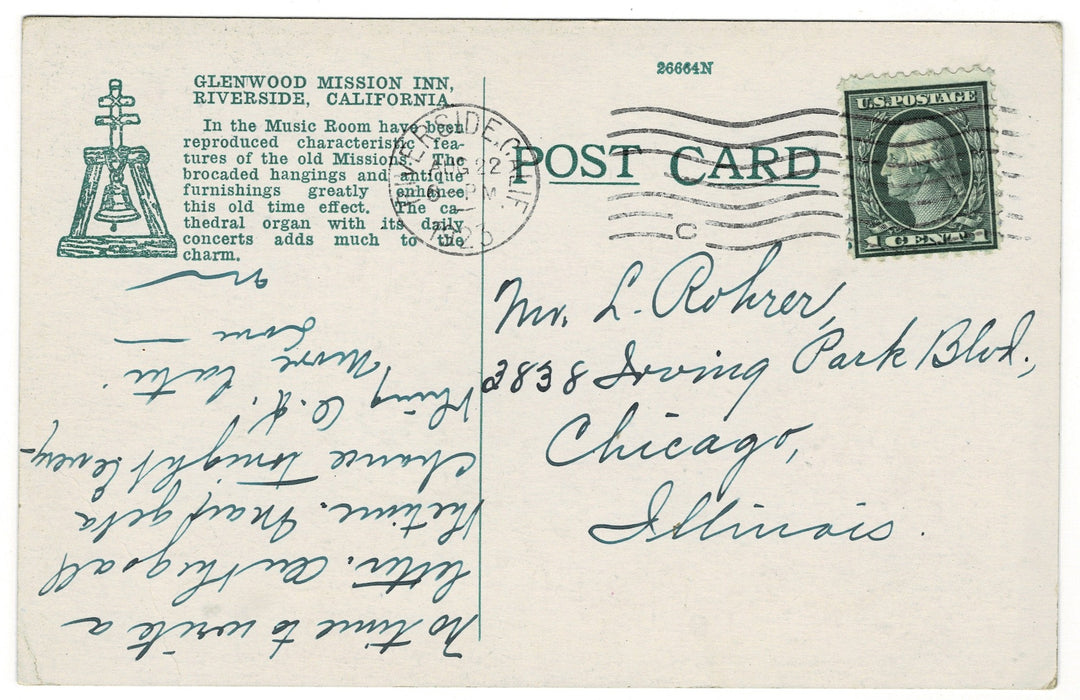 GLENWOOD MISSION INN,
RIVERSIDE, CALIFORNIA.
In the Music Room have been
reproduced characteristic fea-
tures of the old Missions. The
brocaded hangings and antique
furnishings greatly enhance
this old time effect. The ca-
thedral organ with its daily
concerts adds much to the
charm.
26664N
POST CARD
RIVERSIDE, CALIF.
AUG 22
PM
1923
C
U.S. POSTAGE
1 CENT 1
Mr. L. Rohrer,
3838 Irving Park Blvd.,
Chicago,
Illinois.
No time to write a
letter. On the go all
the time. May get a
chance tonight. Every-
thing O.K.
More later
Love —